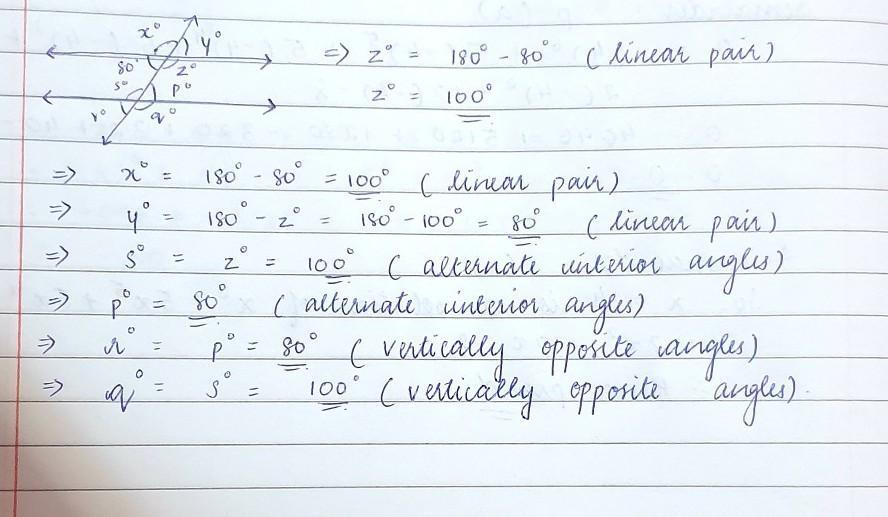 x° y°
80° z°
s° p°
r° q°
=> z° = 180° - 80° (linear pair)
z° = 100°
=> x° = 180° - 80° = 100° (linear pair)
=> y° = 180° - z° = 180° - 100° = 80° (linear pair)
=> s° = z° = 100° (alternate interior angles)
=> p° = 80° (alternate interior angles)
=> r° = p° = 80° (vertically opposite angles)
=> q° = s° = 100° (vertically opposite angles).